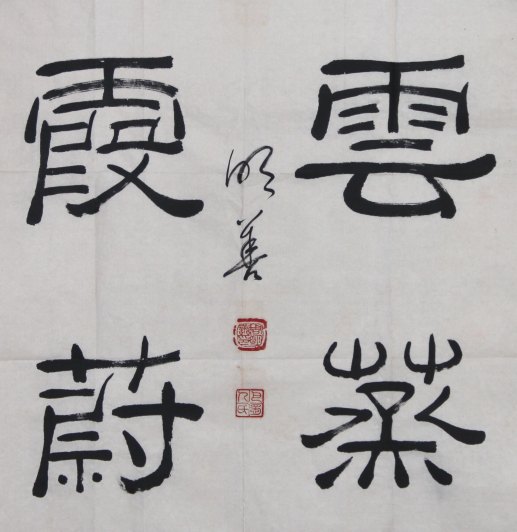 雲蒸
霞蔚
明善